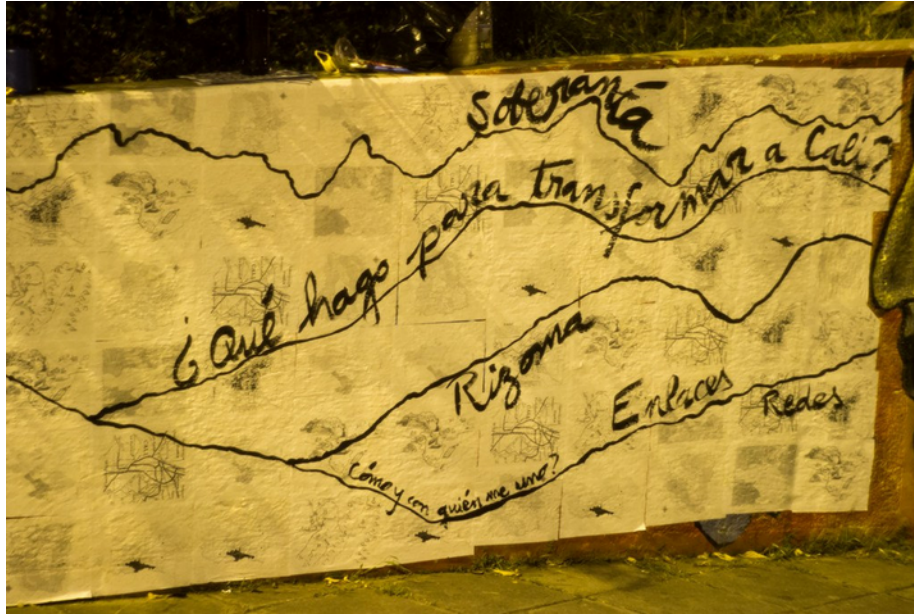 Soberanía
¿Qué hago para transformar a Cali?
Rizoma
Enlaces
Redes
Cómo y con quién me uno?